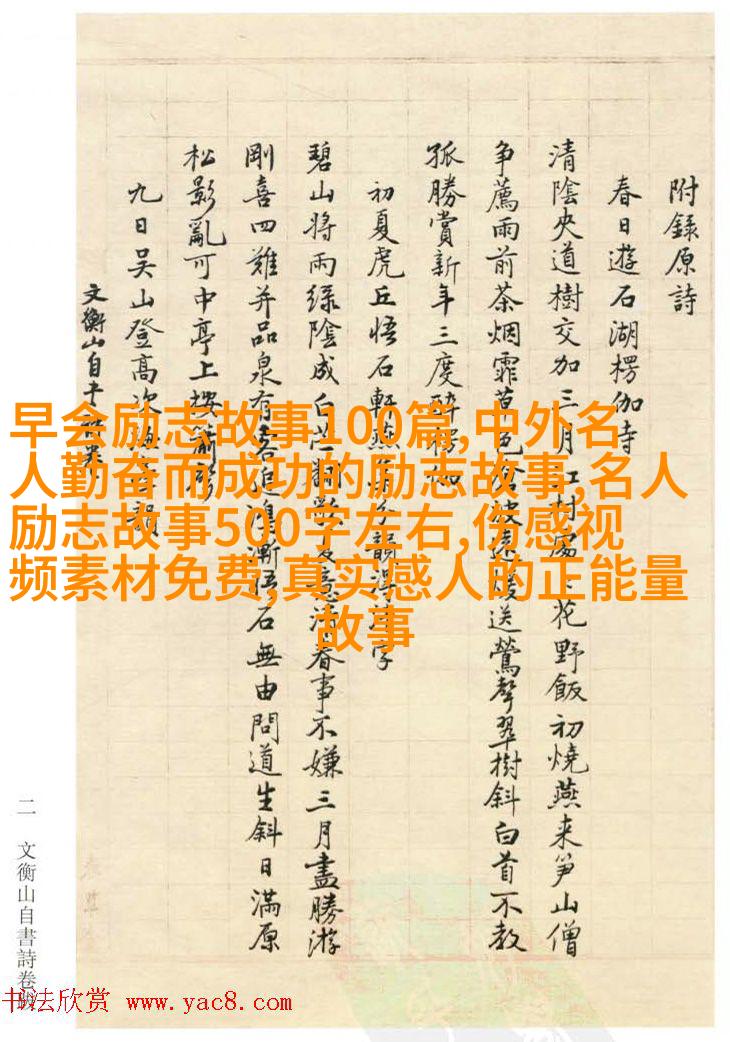 附錄原詩
春日遊石湖楞伽寺
清陰央道樹交加三月江村處〻花野飯初燒燕来笋山僧
争薦雨前茶烟霏草色滄波遠暖送鶯聲翠樹斜白首不教
孤勝賞新年三度醉楞伽
初夏虎丘悟石軒燕
碧山將雨绿陰成白
剛喜四難并品泉有
松影亂可中亭上
九日吴山登高次
文衡山自
春事不嫌三月盡勝游
漸悟石無由問道生斜日滿原
早会励志故事100篇,中外名
人勤奋而成功的励志故事,名人
励志故事500字左右,伤感视
频素材免费,真实感人的正能量
故事
二 文衡山自書詩卷跋
书法欣赏 www.yac8.com